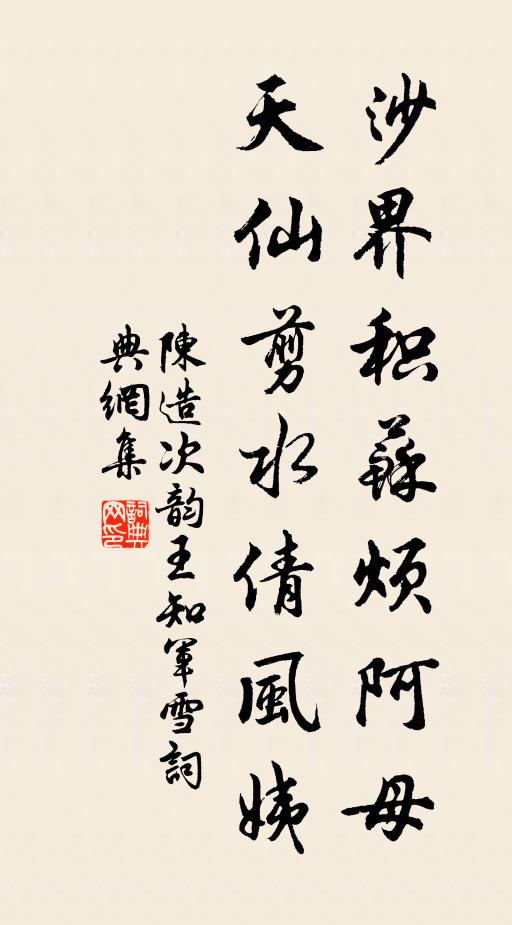 沙界积蘇煩阿母
天仙剪水倩風姨
陳造次韵王知軍雪詞
典網集
詞典网印